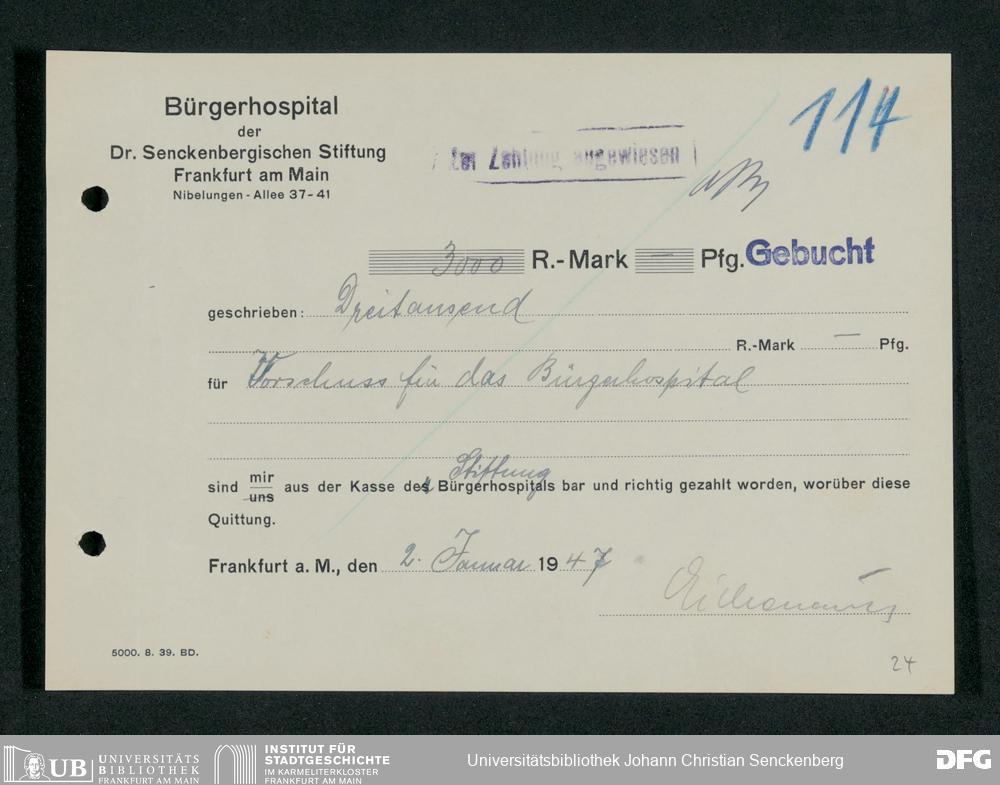 Bürgerhospital
der
Dr. Senckenbergischen Stiftung
Frankfurt am Main
Nibelungen - Allee 37-41
114
Zur Zahlung angewiesen
3000 R.-Mark — Pfg. Gebucht
geschrieben: Dreitausend
R.-Mark — Pfg.
für Vorschuss für das Bürgerhospital
Stiftung
sind mir uns aus der Kasse des Bürgerhospitals bar und richtig gezahlt worden, worüber diese
Quittung.
Frankfurt a. M., den 2. Januar 1947
5000. 8. 39. BD.
24
UB UNIVERSITÄTS
BIBLIOTHEK
FRANKFURT AM MAIN
INSTITUT FÜR
STADTGESCHICHTE
IM KARMELITERKLOSTER
FRANKFURT AM MAIN
Universitätsbibliothek Johann Christian Senckenberg
DFG